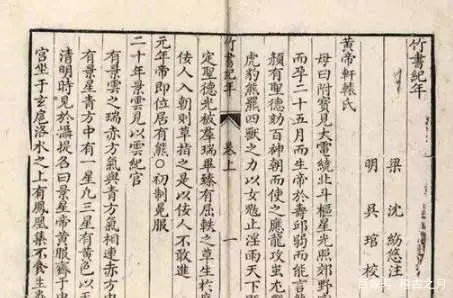 竹書紀年
梁 沈約附注
明 吳琯校
黃帝軒轅氏
母曰附寶見大電繞北斗樞星光照郊野感
而孕二十五月而生帝於壽邱弱而能言龍
顏有聖德劾百神朝而使之應龍攻蚩尤
虎豹熊羆四獸之力以女魃止淫雨天下既
竹書紀年 卷上 一
定聖德光被羣瑞畢臻有屈軼之草生於庭
佞人入朝則草指之是以佞人不敢進
元年帝即位居有熊○初制冕服
二十年景雲見以雲紀官
有景雲之瑞赤方氣與青方氣相連赤方中
有景星青方中有一星凡三星有黃色以天
清明時見於攝提名曰景星帝黃服齋于中
宮坐于玄扈洛水之上有鳳凰集不食生